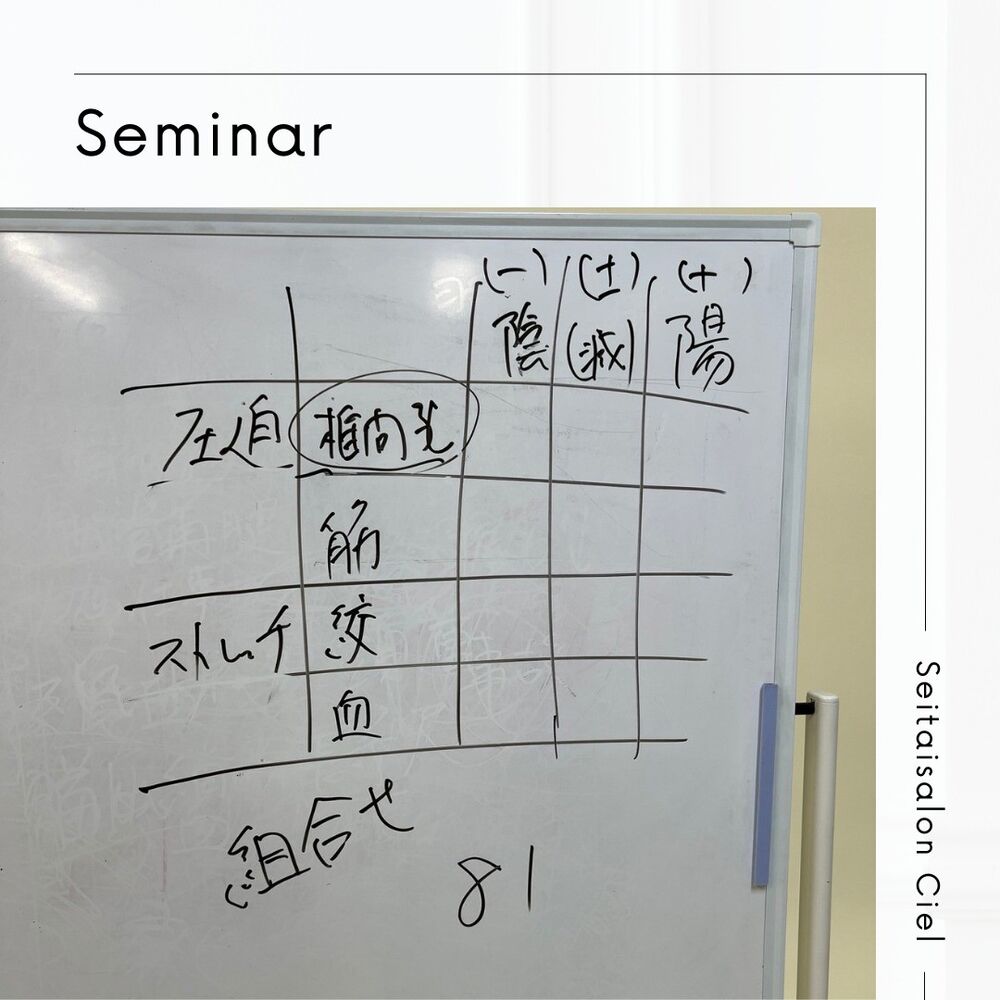 Seminar
(−) (±) (+)
陰 (減) 陽
圧迫 椎間孔
筋
ストレッチ 絞
血
組合せ
81
Seitaisalon Ciel